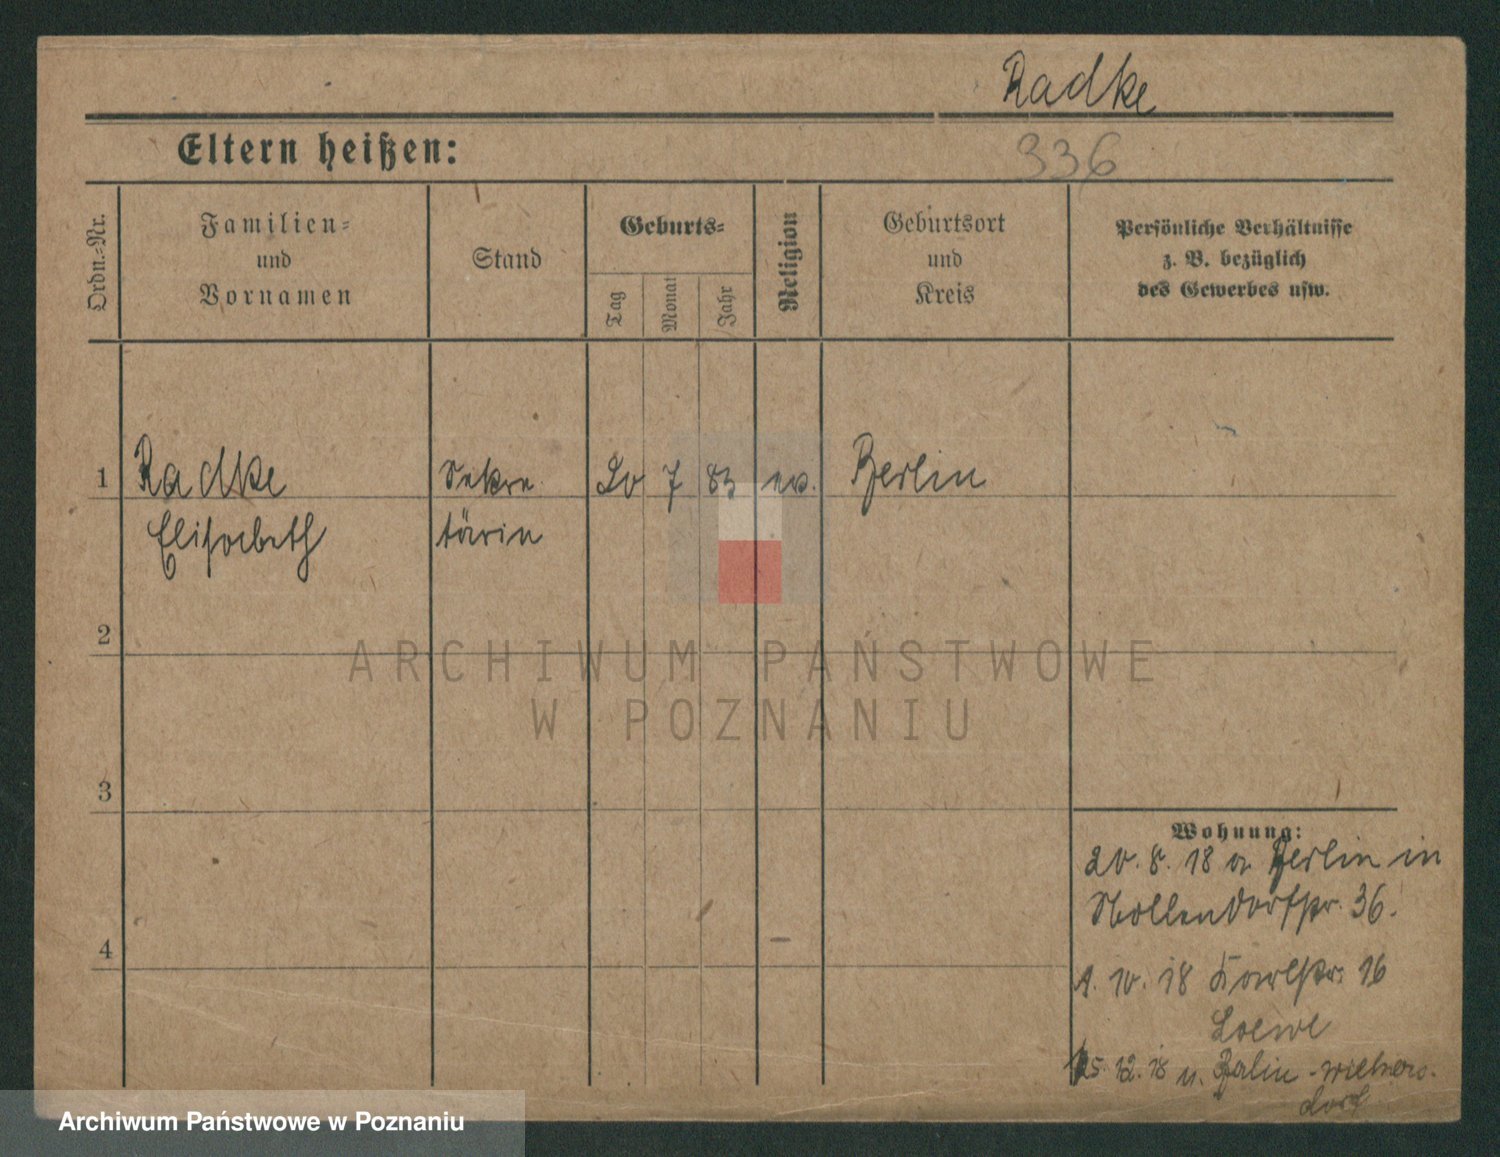 Radke
Eltern heißen:
336
Ordn.-Nr.
Familien-
und
Vornamen
Stand
Geburts-
Tag
Monat
Jahr
Religion
Geburtsort
und
Kreis
Persönliche Verhältnisse
z. B. bezüglich
des Gewerbes usw.
1
Radke
Sekre
20
7
83
ev.
Berlin
Elisabeth
tärin
2
ARCHIWUM PAŃSTWOWE
W POZNANIU
3
Wohnung:
20. 8. 18 a Berlin in
Nollendorfstr. 36.
4
1. 10. 18 Karlstr. 16
Loewe
12. 18 n. Berlin-Wilmers-
dorf
Archiwum Państwowe w Poznaniu